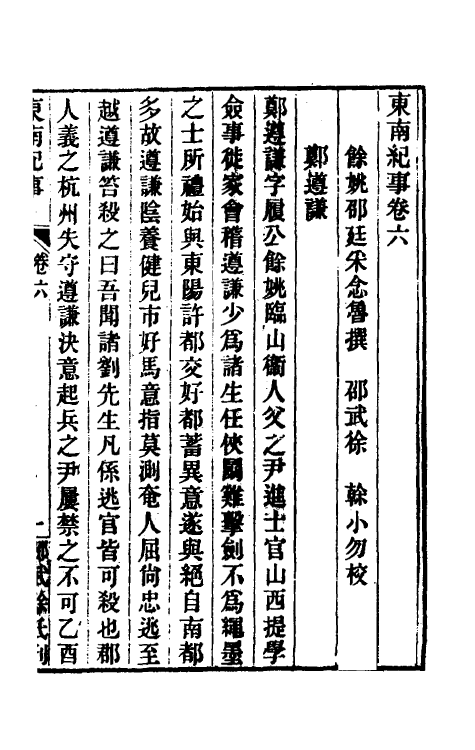 東南紀事卷六
餘姚邵廷采念魯撰　邵武徐　榦小勿校
鄭遵謙
鄭遵謙字履公餘姚臨山衞人父之尹進士官山西提學
僉事徙家會稽遵謙少爲諸生任俠鬭雞擊劍不爲繩墨
之士所禮始與東陽許都交好都蓄異意遂與絕自南都
多故遵謙陰養健兒市好馬意指莫測奄人屈尙忠逃至
越遵謙笞殺之曰吾聞諸劉先生凡係逃官皆可殺也郡
人義之杭州失守遵謙決意起兵之尹屢禁之不可乙酉
東南紀事　卷六　一　邵武徐氏刊